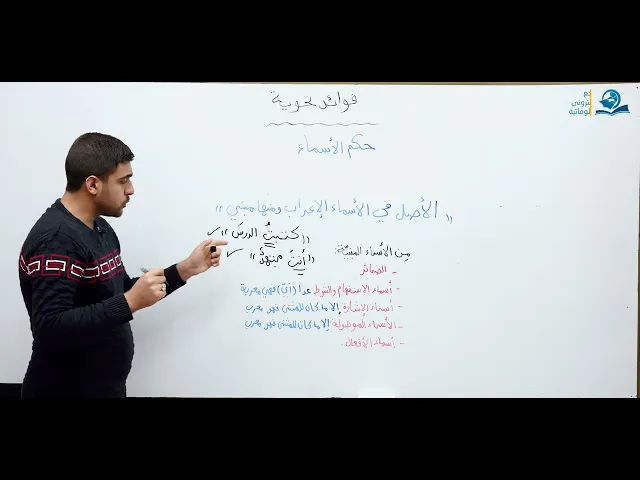 فوائد نحوية
حكم الأسماء
"الأصل في الأسماء الإعراب ومنها مبني"
"كتبتُ الدرسَ"
من الأسماء المبنيّة:
"أنتَ مجتهدٌ"
- الضمائر
- أسماء الاستفهام والشرط عدا (أيّ) فهي معربة
- أسماء الإشارة إلا ما كان للمثنى فهو معرب
- الأسماء الموصولة إلا ما كان للمثنى فهو معرب
- أسماء الأفعال.